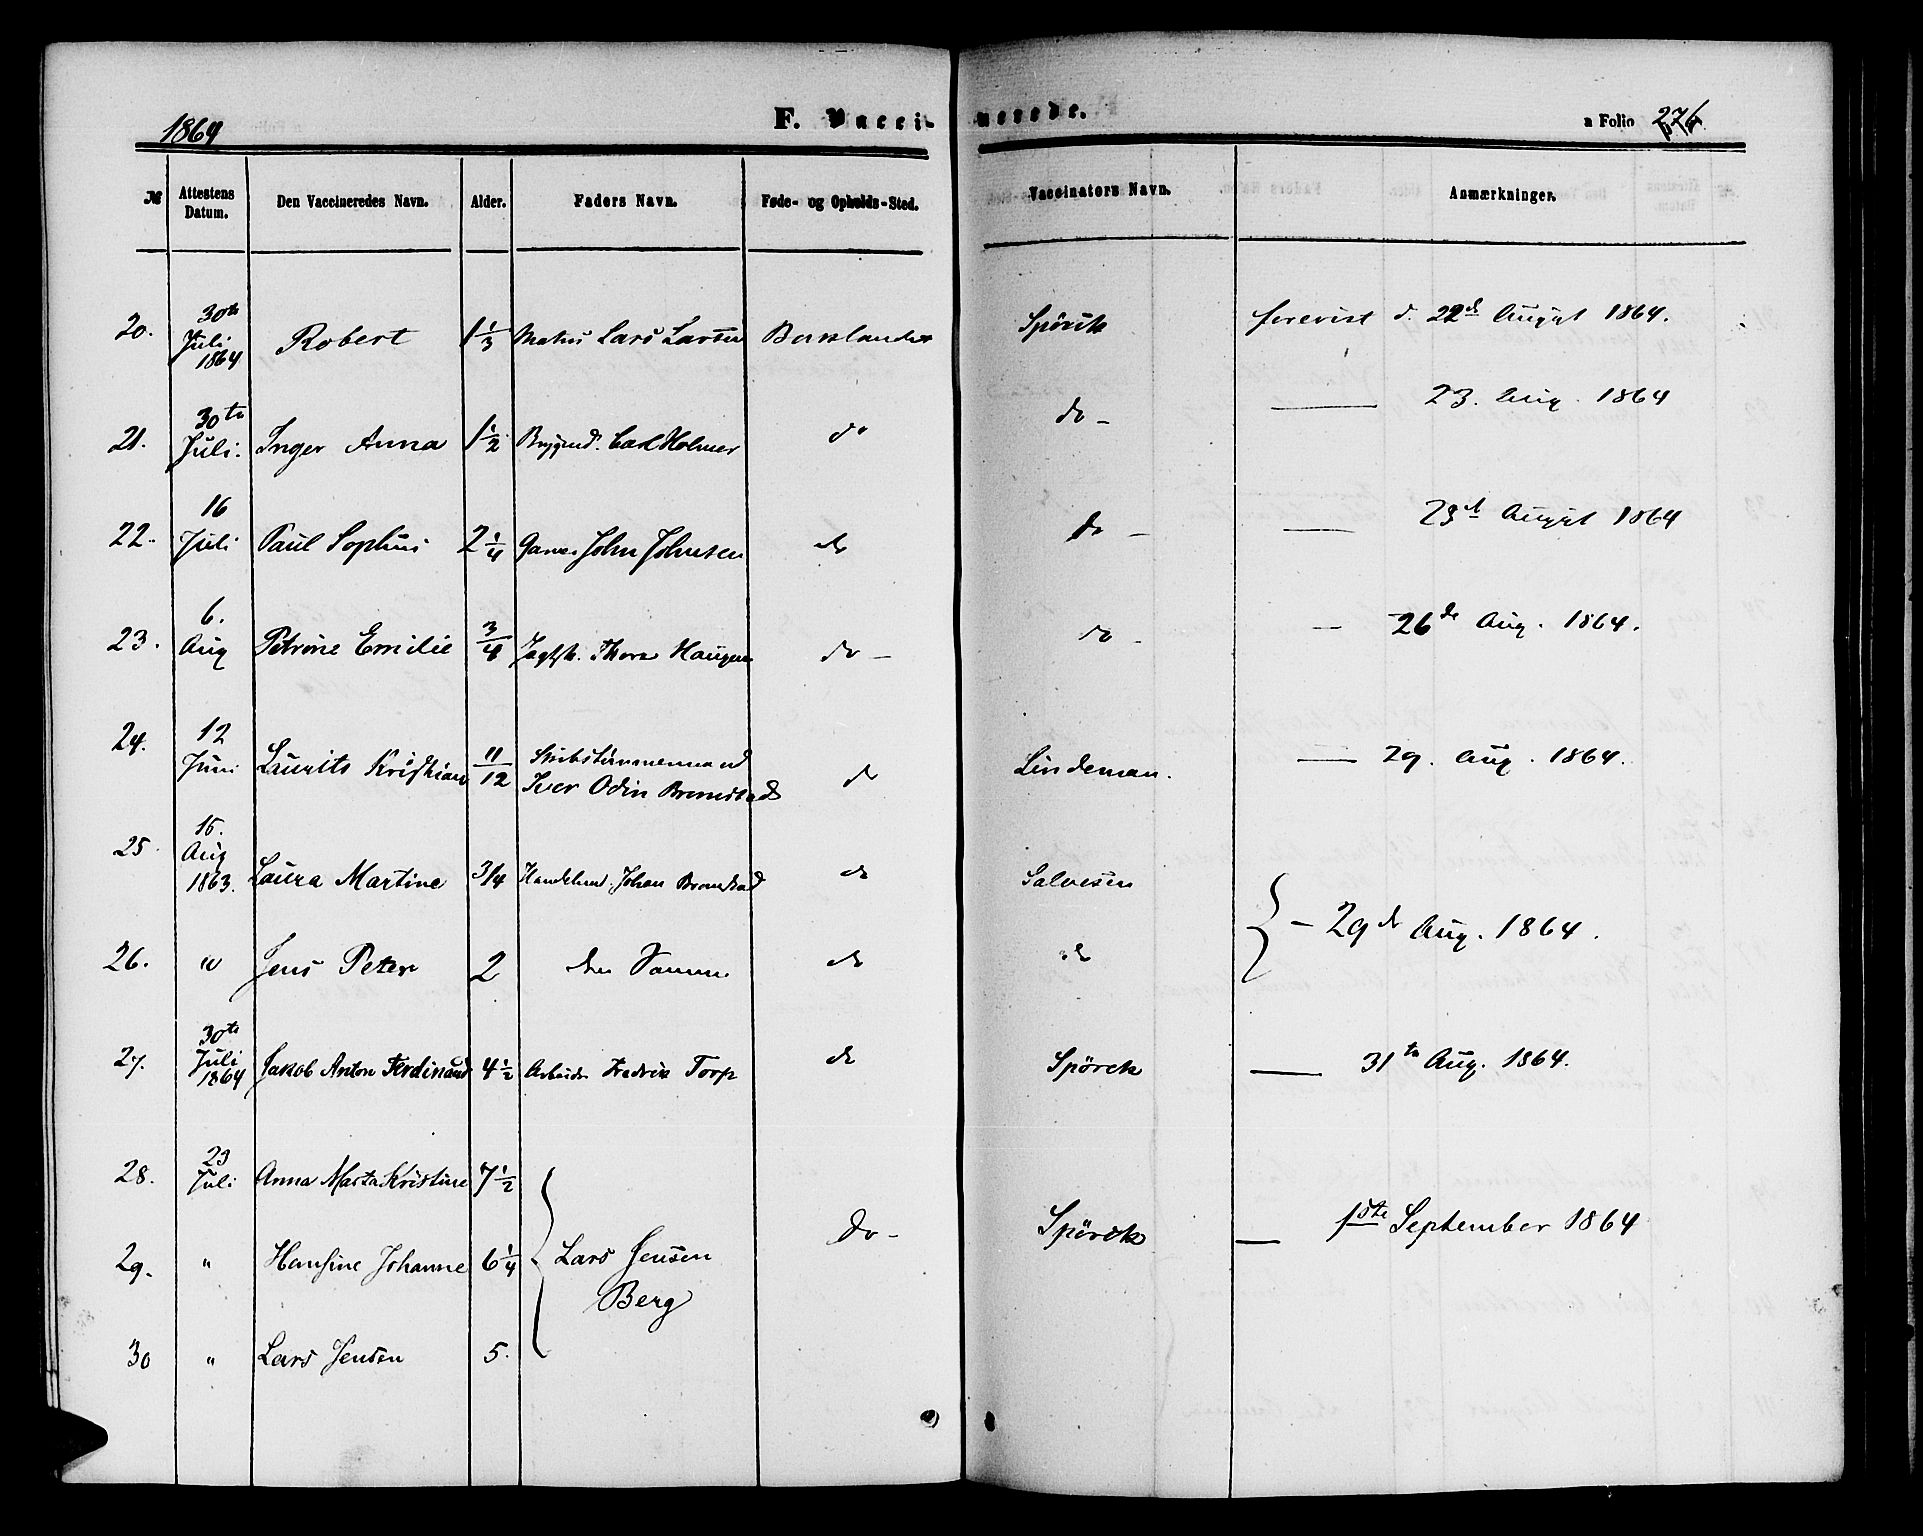 1864
F. Vaccinerede.
a Folio 276.
№ Attestens Datum. Den Vaccineredes Navn. Alder. Faders Navn. Føde- og Opholds-Sted. Vaccinators Navn. Anmærkninger.
20. 30te Juli 1864 Robert 1 1/3 Lars Larsen Baklandet Spörck forevist d. 22de August 1864.
21. 30te Juli. Inger Anna 1 1/2 Carl Holmer do do - — 23. Aug. 1864
22. 16 Juli Paul Sophus 2 1/4 John Johnsen do do - — 23d August 1864
23. 6. Aug Petrine Emilie 3/4 Thore Haugen do - do - — 26de Aug. 1864.
24. 12 Juni Laurits Kristian 11/12 Skibstømmermand Iver Odin Bromstad do Lindeman. — 29. Aug. 1864.
25. 15. Aug 1863. Laura Martine 3/4 Handelsmd. Johan Bromstad do Salvesen
26. " Jens Peter 2 den Samme do do — 29de Aug. 1864.
27. 30te Juli 1864 Jakob Anton Ferdinand 4 1/2 Arbeider Fredrik Torp do Spörck — 31te Aug. 1864.
28. 23 Juli Anna Marta Kristine 7 1/2
29. " Hansine Johanne 6 1/4 Lars Jensen Berg Do - Spörck — 1ste September 1864
30 " Lars Jensen 5.